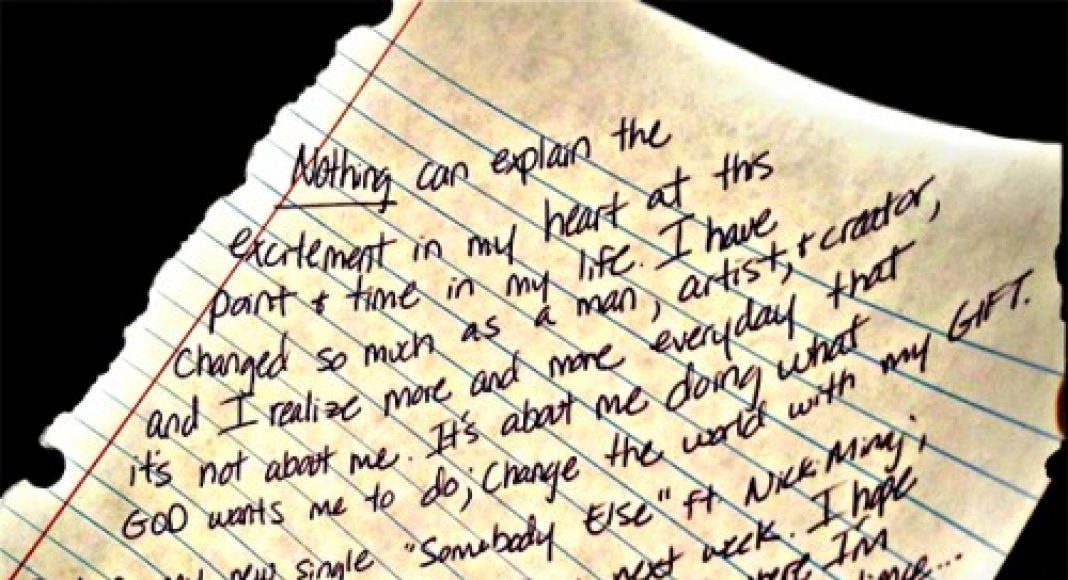 Nothing can explain the
excitement in my heart at this
point + time in my life. I have
changed so much as a man, artist, + creator,
and I realize more and more everyday that
it's not about me. It's about me doing what
GOD wants me to do; Change the world with my GIFT.
new single "Somebody Else" ft. Nicki Minaj;
next week. I hope
I'm